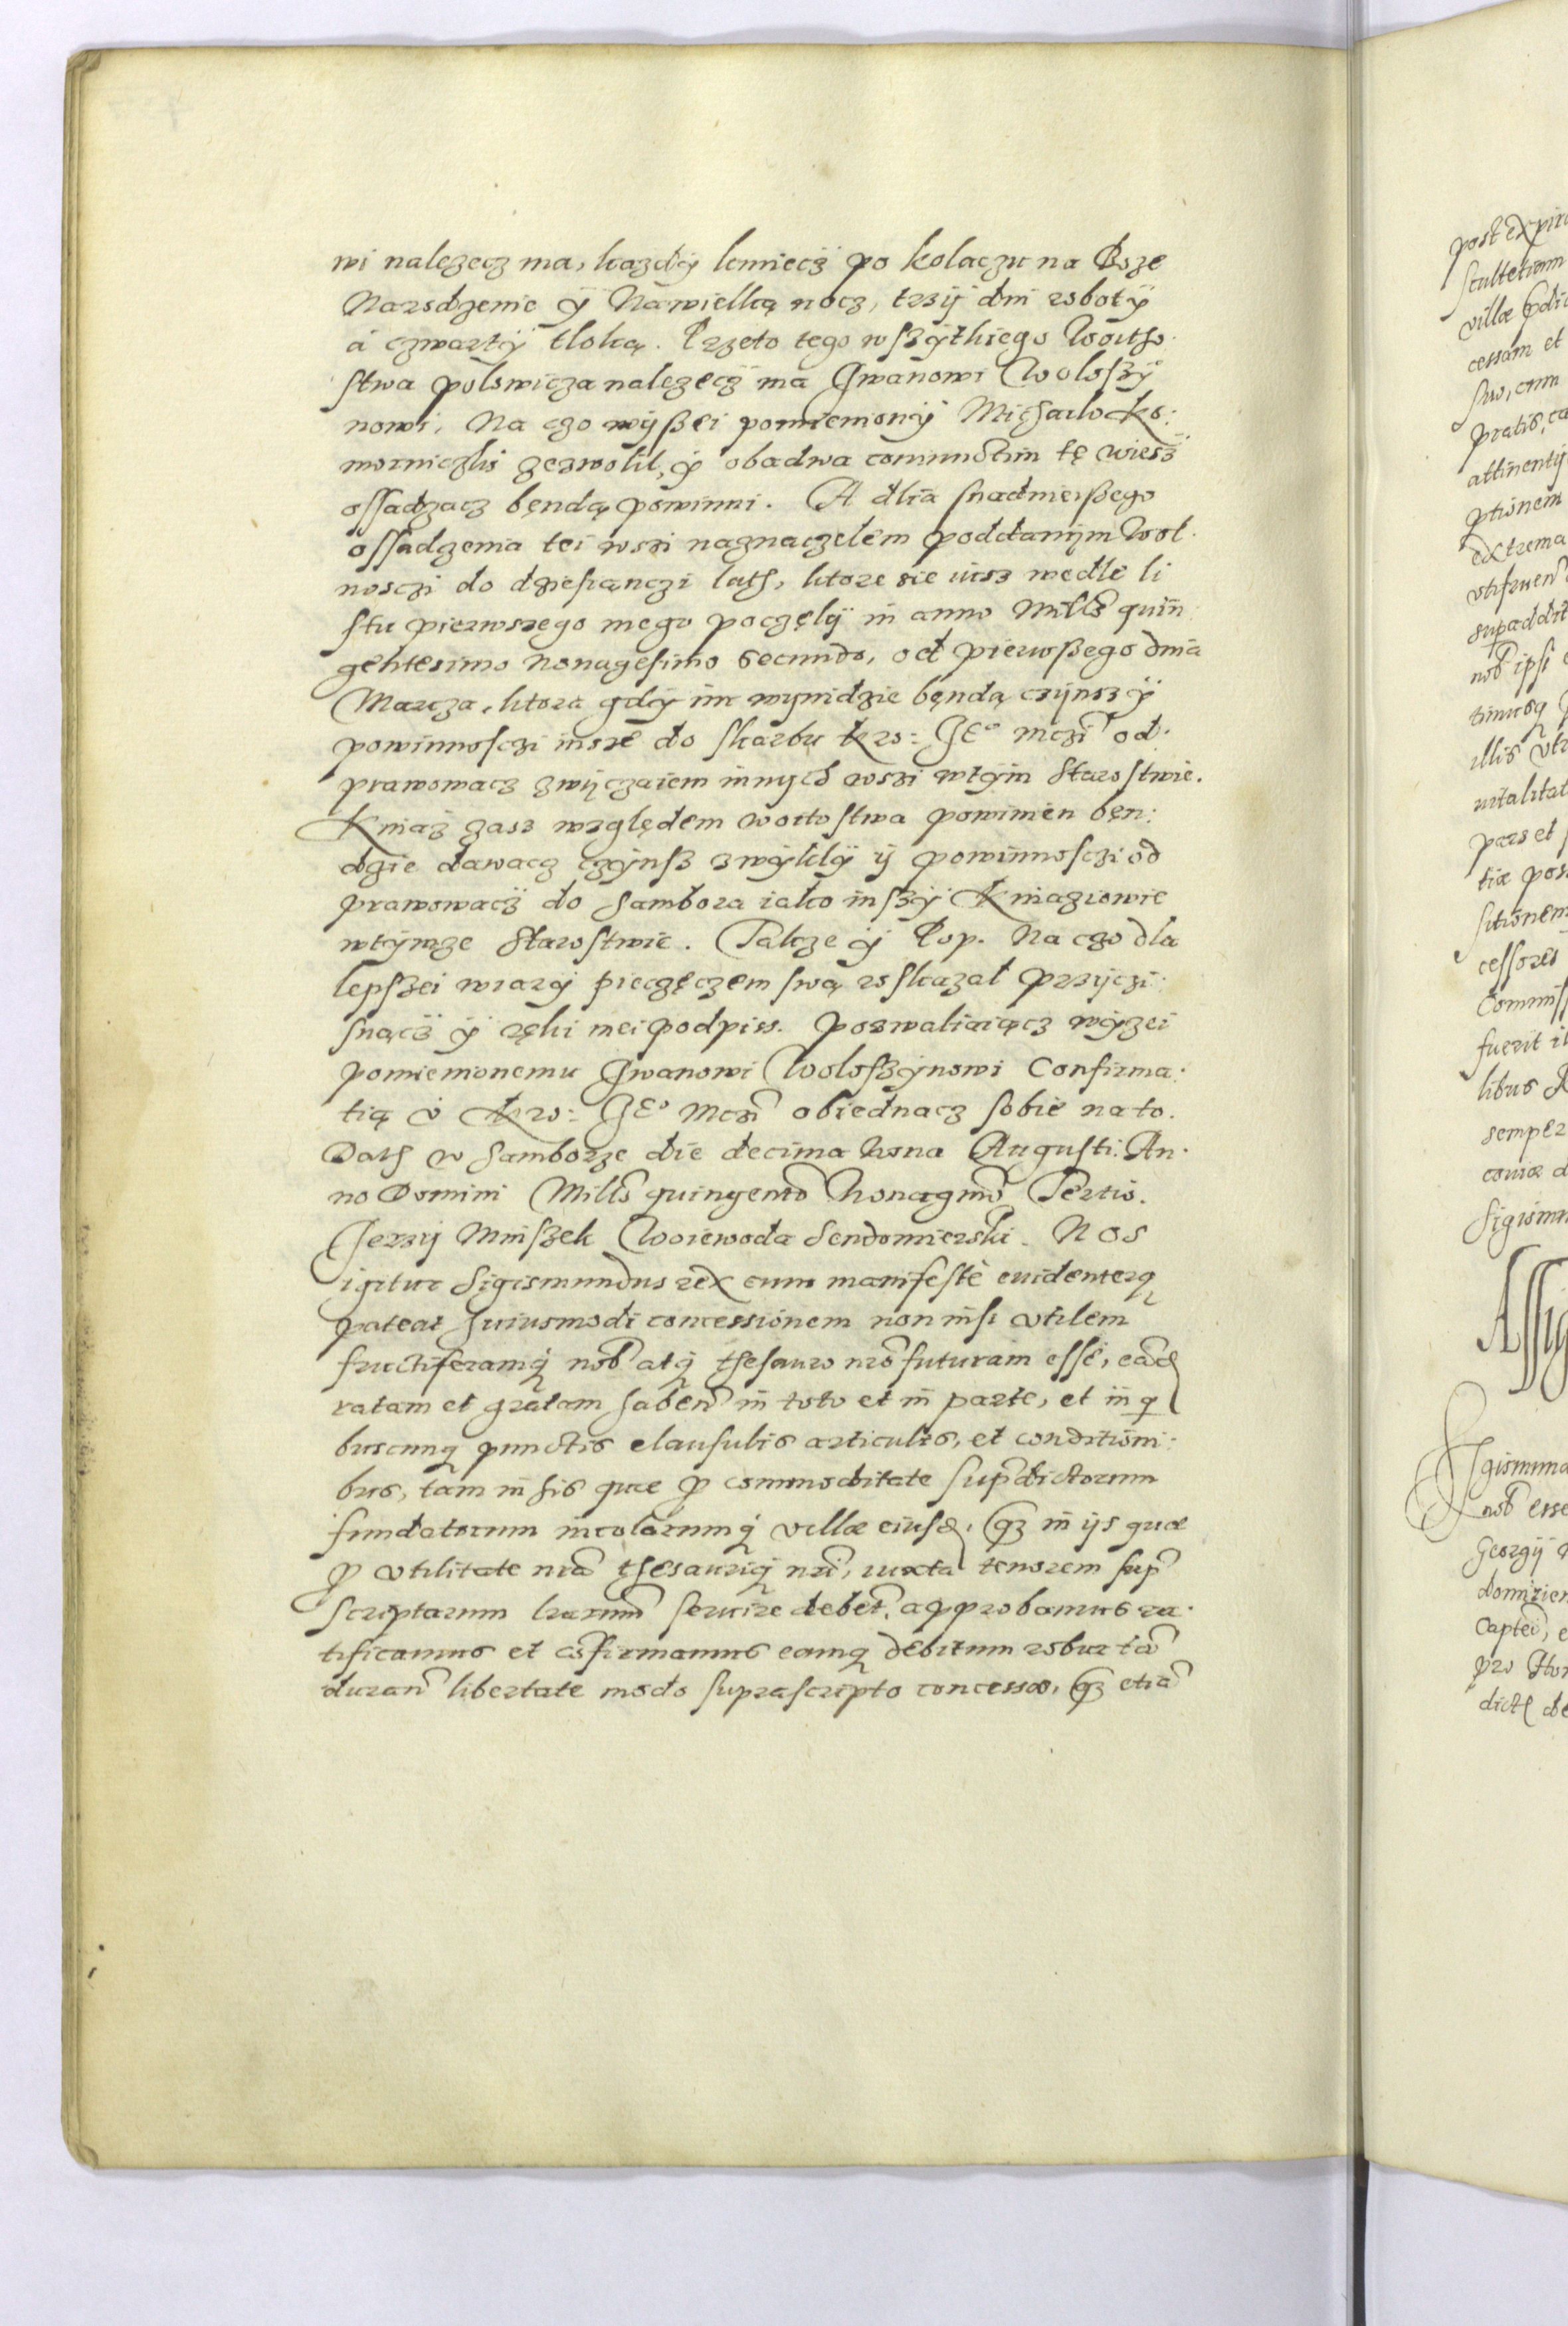 wi nalezecz ma, kazdÿ kmiecz po kolaczu na Boze
Narodzenie ÿ Nawielką nocz, trzÿ dni robotÿ
á czwartÿ tloką. Przeto tego wszÿtkiego Woitho
stwa polowicza nalezecz ma Iwanowi Woloszÿ
nowi, Na czo wÿßei pomienionÿ Michailo Ko:
morniczki zezwolil, ÿ obadwa coniunctim tę wiesz
ossadzacz będną powinni. A dlia snadnieißego
ossadzenia tei wszi naznaczelem poddanÿm Wol
nosczi do dziesiąnczi lath, ktore sie iusz wedle li
stu pierwszego mego poczęlÿ in anno Millo quin
gentesimo Nonagesimo Secundo, od pierwßego dnia
Marcza, ktora gdÿ im wynidzie będną czÿnszÿ
powinnosczi insze do skarbu Kro: Jeo Mczi od
prawowacz zwÿczaiem innych wszi wtÿm Starostwie.
Kniaz zasz względem Woitostwa powinien bęn:
dzie dawacz czÿnsz zwÿklÿ ÿ powinnosczi od
prawowacz do Sambora iako inszÿ Kniaziowie
wtÿmze Starostwie. Takze ÿ Pop. Na czo dla
lepszei wiarÿ pieczęczem swą roskazal przÿczi:
snącz ÿ ręki mei podpiss. Pozwaliaiącz wÿzei
pomienionemu Iwanowi Woloszÿnowi Confirma:
tią v Kro: Jeo Mczi obiednacz sobie na to.
Dath w Samborze die decima Nona Augusti. An
no Domini Millo quingento Nonagmo Tertio.
Jerzÿ Mniszek Woiewoda Sendomierski. Nos
igitur Sigismundus rex cum manifestè euidenterq
pateat huiusmodi concessionem non nisi vtilem
fructiferamq nob atq thesauro nro futuram esse, eād
ratam et gratam haben in toto et in parte, et in q
buscunq punctis clausulis articulis, et conditioni:
bus, tam in his quae p commoditate supdictorum
fundatorum incolarumq villae eiusd, qz in ijs quae
p vtilitate nra thesauriq nri, iuxta tenorem sup
scriptarum lrarum seruire debet, approbamus ra
tificamus et cōfirmamus eamq debitum robur tā
duran libertate modo suprascripto concessa, qz etiā